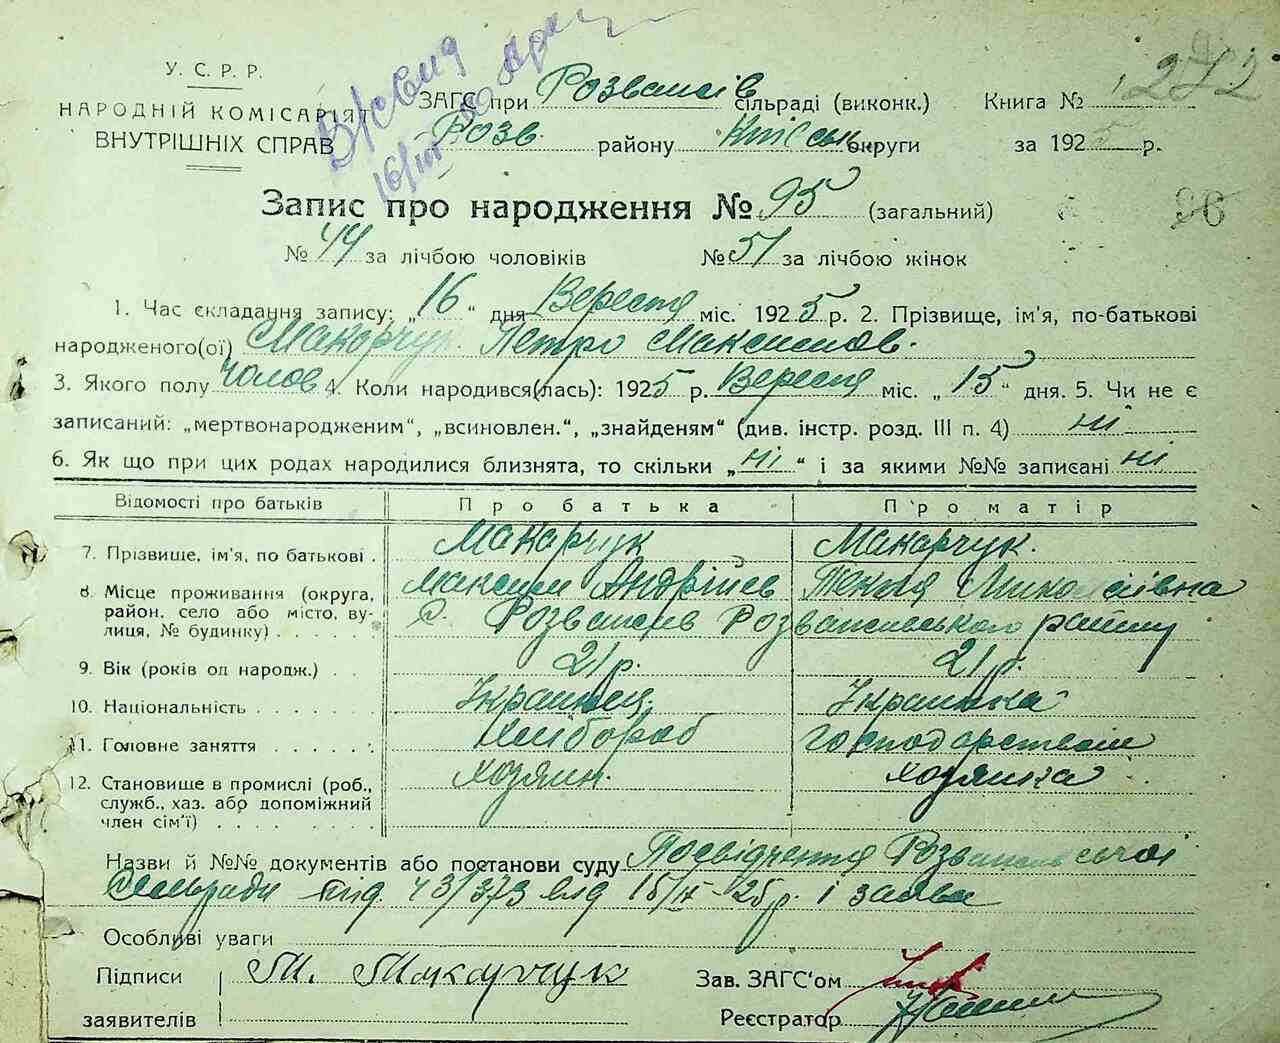 У. С. Р. Р.
НАРОДНІЙ КОМІСАРІЯТ
ВНУТРІШНІХ СПРАВ
ЗАГС при Розважів сільраді (виконк.) Книга №
Розв. району Київськ. округи за 1925 р.
16/III
242
Запис про народження № 95 (загальний)
26
№ 44 за лічбою чоловіків № 51 за лічбою жінок
1. Час складання запису: „16“ дня Вересня міс. 1925 р. 2. Прізвище, ім'я, по-батькові
народженого(ої) Макарчук Петро Максимов.
3. Якого полу чолов 4. Коли народився(лась): 1925 р. Вересня міс. „15“ дня. 5. Чи не є
записаний: „мертвонародженим“, „всиновлен.“, „знайденям“ (див. інстр. розд. III п. 4) ні
6. Як що при цих родах народилися близнята, то скільки „ні“ і за якими №№ записані ні
Відомості про батьків Про батька Про матір
7. Прізвище, ім'я, по батькові . Макарчук Макарчук.
Максим Андріїв Текля Миколаївна
8. Місце проживання (округа,
район, село або місто, вулиця, № будинку) . . . . . с. Розважів Розважівського району
9. Вік (років од народж.) . . 21 р. 21 р.
10. Національність . . . . . . . Українець Українка
11. Головне заняття . . . . . . Хлібороб господарством
12. Становище в промислі (роб., Хозяин. хозяйка
служб., хаз. або допоміжний
член сім'ї) . . . . . . . . .
Назви й №№ документів або постанови суду Посвідчення Розважівської
Сільради від 15/IX 25 р. і заява
Особливі уваги
Підписи М. Макарчук Зав. ЗАГС'ом
заявителів Реєстратор